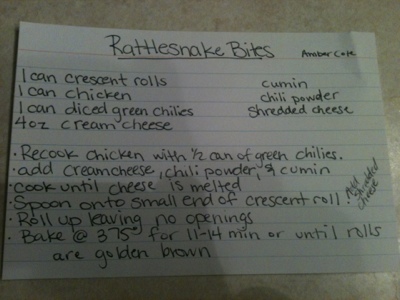 Rattlesnake Bites
Amber Cote
1 can crescent rolls
1 can chicken
1 can diced green chilies
4oz cream cheese
cumin
chili powder
Shredded cheese
· Recook chicken with 1/2 can of green chilies.
· add creamcheese, chili powder, & cumin
· cook until cheese is melted
· Spoon onto small end of crescent roll.
Add shredded cheese
· Roll up leaving no openings
· Bake @ 375° for 11-14 min or until rolls
are golden brown